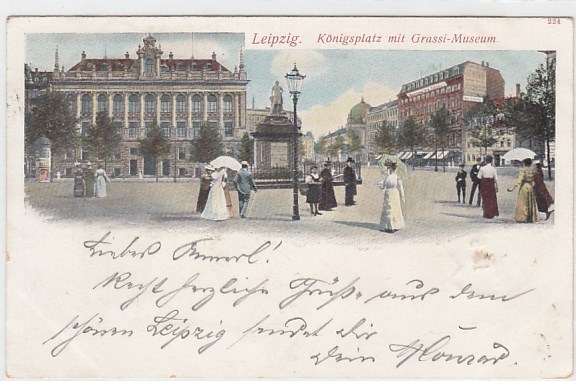 Leipzig. Königsplatz mit Grassi-Museum.
224
Liebes
Recht herzliche Grüße aus dem
schönen Leipzig sendet dir
dein Konrad.